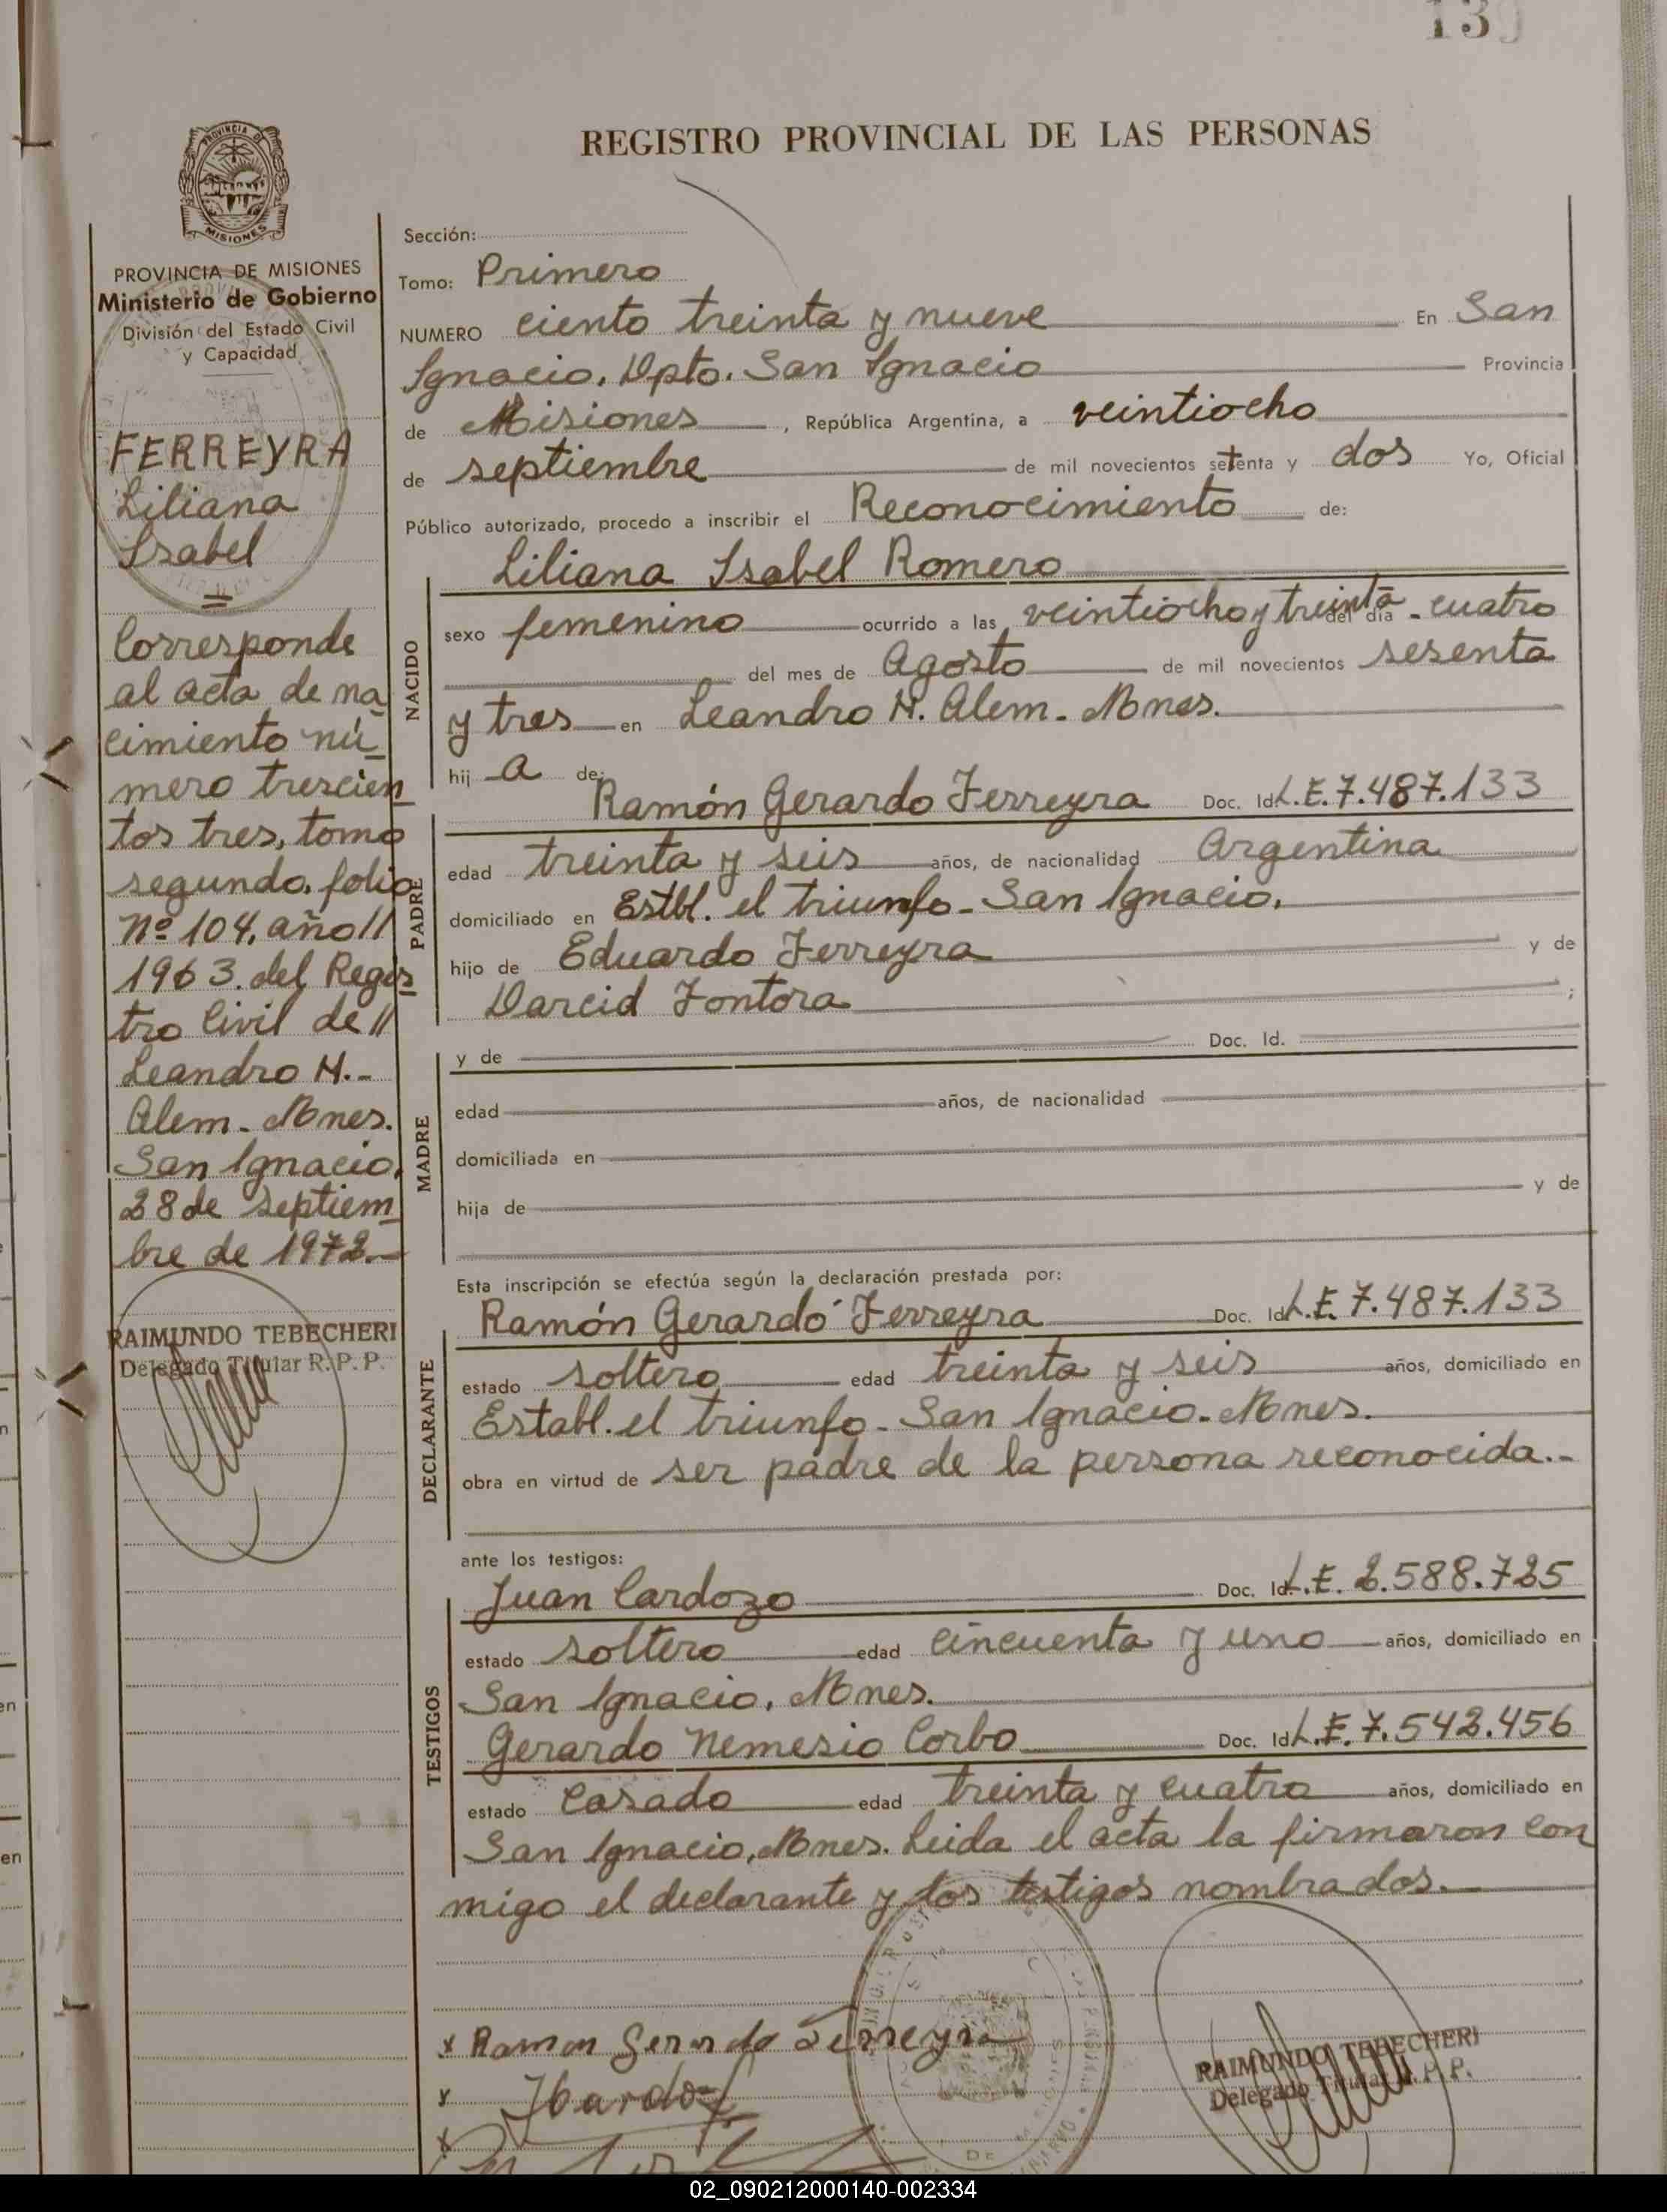 139
REGISTRO PROVINCIAL DE LAS PERSONAS
PROVINCIA DE MISIONES
Ministerio de Gobierno
División del Estado Civil
y Capacidad
FERREYRA
Liliana
Isabel
Corresponde
al acta de na
cimiento nú
mero trescien
tos tres, tomo
segundo, folio
Nº 104, año //
1963. del Regis
tro Civil de //
Leandro N.-
Alem - Mnes.
San Ignacio,
28 de septiem
bre de 1972.-
RAIMUNDO TEBECHERI
Delegado Titular R. P. P.
Sección:
Tomo: Primero
NUMERO ciento treinta y nueve En San
Ignacio, Dpto. San Ignacio Provincia
de Misiones , República Argentina, a veintiocho
de septiembre de mil novecientos setenta y dos Yo, Oficial
Público autorizado, procedo a inscribir el Reconocimiento de:
Liliana Isabel Romero
NACIDO
sexo femenino ocurrido a las veintiocho y treinta del día - cuatro
del mes de Agosto de mil novecientos sesenta
y tres en Leandro N. Alem - Mnes.
hij a de:
Ramón Gerardo Ferreyra Doc. Id. L.E. 7.487.133
PADRE
edad treinta y seis años, de nacionalidad Argentina
domiciliado en Estbl. el triunfo - San Ignacio.
hijo de Eduardo Ferreyra y de
Darcid Fontora ;
MADRE
y de Doc. Id.
edad años, de nacionalidad
domiciliada en
hija de y de
Esta inscripción se efectúa según la declaración prestada por:
Ramón Gerardo Ferreyra Doc. Id. L.E. 7.487.133
DECLARANTE
estado soltero edad treinta y seis años, domiciliado en
Establ. el triunfo - San Ignacio - Mnes.
obra en virtud de ser padre de la persona reconocida.-
ante los testigos:
Juan Cardozo Doc. Id. L.E. 2.588.725
TESTIGOS
estado soltero edad cincuenta y uno años, domiciliado en
San Ignacio, Mnes.
Gerardo Nemesio Corbo Doc. Id. L.E. 7.542.456
estado Casado edad treinta y cuatro años, domiciliado en
San Ignacio, Mnes. Leida el acta la firmaron con
migo el declarante y los testigos nombrados.
x Ramon Gerardo Ferreyra
x
x
RAIMUNDO TEBECHERI
Delegado Titular R. P. P.
02_090212000140-002334